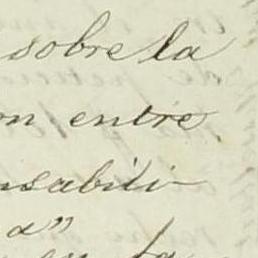 sobre la
on entre
nsabili-
a"
en la